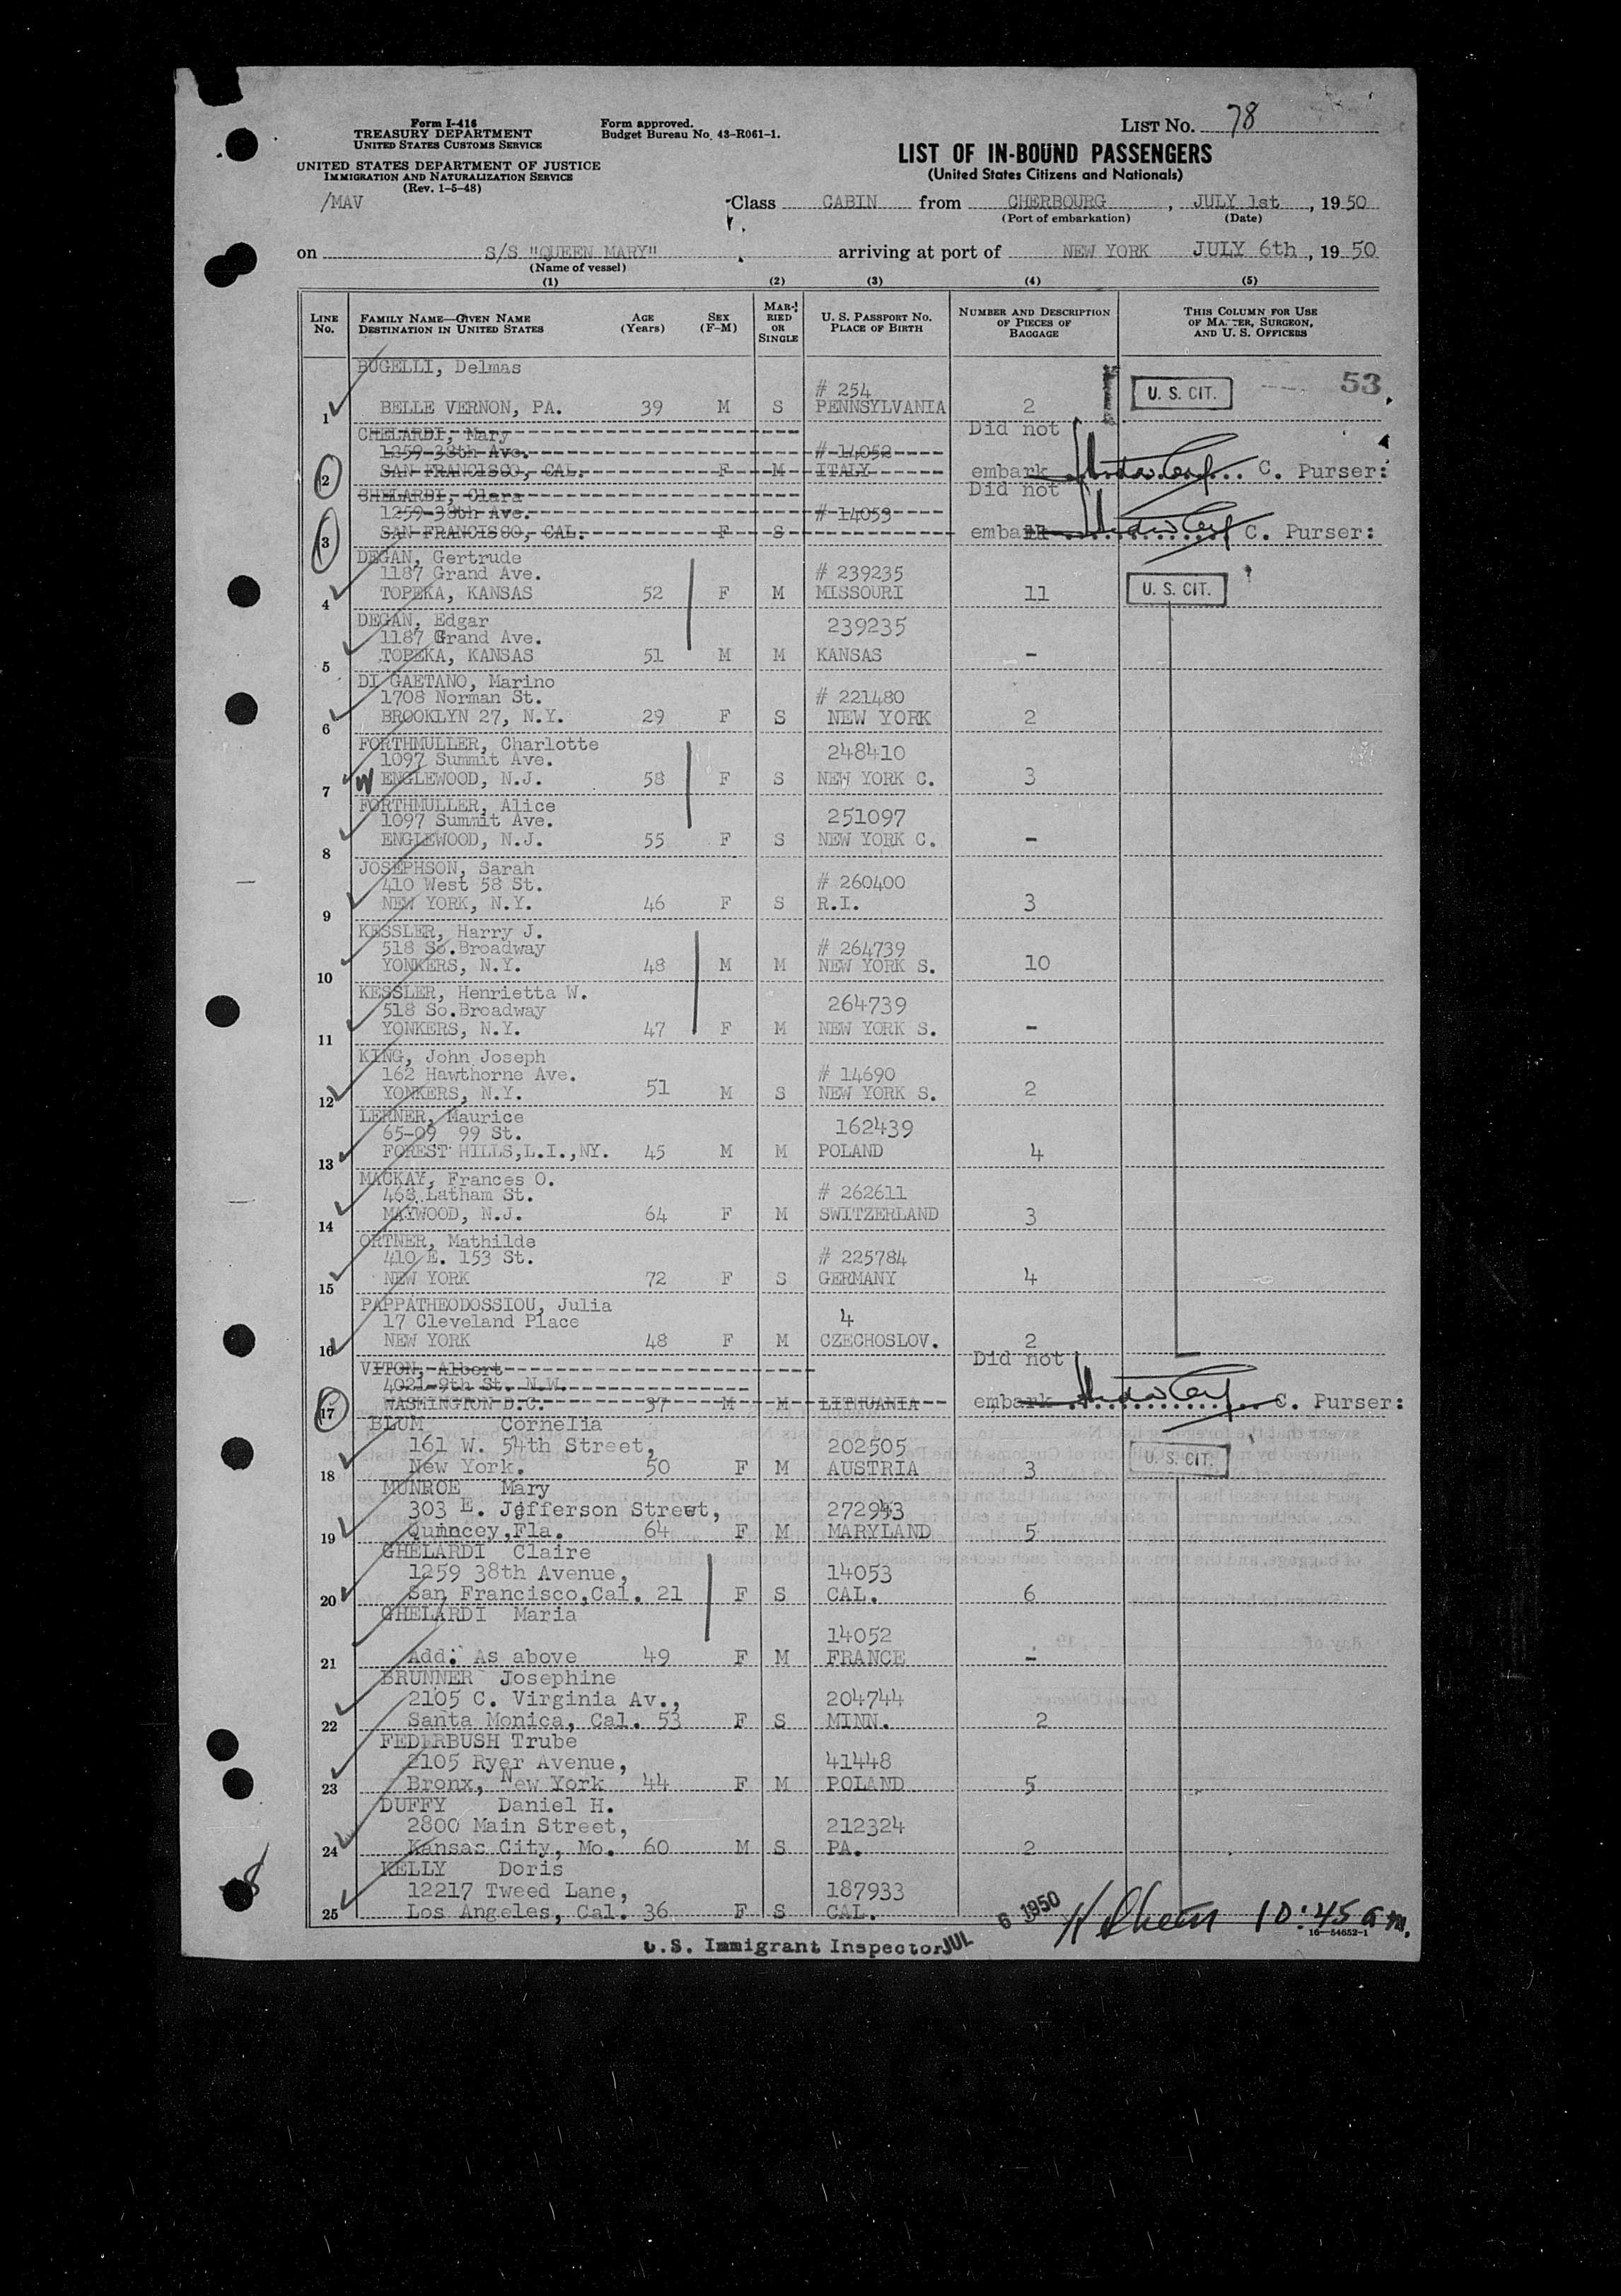 Form I-416
TREASURY DEPARTMENT
UNITED STATES CUSTOMS SERVICE
UNITED STATES DEPARTMENT OF JUSTICE
IMMIGRATION AND NATURALIZATION SERVICE
(Rev. 1-5-48)
/MAV
Form approved.
Budget Bureau No. 43-R061-1.
LIST No. 78
LIST OF IN-BOUND PASSENGERS
(United States Citizens and Nationals)
Class CABIN from CHERBOURG, JULY 1st, 1950
(Port of embarkation) (Date)
on S/S "QUEEN MARY" arriving at port of NEW YORK JULY 6th, 1950
(Name of vessel)
(1) (2) (3) (4) (5)
LINE No. FAMILY NAME—GIVEN NAME DESTINATION IN UNITED STATES AGE (Years) SEX (F-M) MARRIED OR SINGLE U. S. PASSPORT No. PLACE OF BIRTH NUMBER AND DESCRIPTION OF PIECES OF BAGGAGE THIS COLUMN FOR USE OF MASTER, SURGEON, AND U. S. OFFICERS
BUGELLI, Delmas
# 254 U. S. CIT. 53
1 BELLE VERNON, PA. 39 M S PENNSYLVANIA 2
CHELARDI, Mary Did not
1259-38th Ave. # 14052
2 SAN FRANCISCO, CAL. F M ITALY embark C. Purser:
CHELARDI, Clara Did not
1259-38th Ave. # 14053
3 SAN FRANCISCO, CAL. F S embark C. Purser:
DEGAN, Gertrude
1187 Grand Ave. # 239235 U. S. CIT.
4 TOPEKA, KANSAS 52 F M MISSOURI 11
DEGAN, Edgar
1187 Grand Ave. 239235
5 TOPEKA, KANSAS 51 M M KANSAS -
DI GAETANO, Marino
1708 Norman St. # 221480
6 BROOKLYN 27, N.Y. 29 F S NEW YORK 2
FORTHMULLER, Charlotte
1097 Summit Ave. 248410
7 W ENGLEWOOD, N.J. 58 F S NEW YORK C. 3
FORTHMULLER, Alice
1097 Summit Ave. 251097
8 ENGLEWOOD, N.J. 55 F S NEW YORK C. -
JOSEPHSON, Sarah
410 West 58 St. # 260400
9 NEW YORK, N.Y. 46 F S R.I. 3
KESSLER, Harry J.
518 So.Broadway # 264739
10 YONKERS, N.Y. 48 M M NEW YORK S. 10
KESSLER, Henrietta W.
518 So.Broadway 264739
11 YONKERS, N.Y. 47 F M NEW YORK S. -
KING, John Joseph
162 Hawthorne Ave. # 14690
12 YONKERS, N.Y. 51 M S NEW YORK S. 2
LERNER, Maurice
65-09 99 St. 162439
13 FOREST HILLS,L.I.,NY. 45 M M POLAND 4
MACKAY, Frances O.
468 Latham St. # 262611
14 MAYWOOD, N.J. 64 F M SWITZERLAND 3
ORTNER, Mathilde
410 E. 153 St. # 225784
15 NEW YORK 72 F S GERMANY 4
PAPPATHEODOSSIOU, Julia
17 Cleveland Place 4
16 NEW YORK 48 F M CZECHOSLOV. 2
VITON, Albert Did not
4021-9th St. N.W.
17 WASHINGTON D.C. 37 M M LITHUANIA embark C. Purser:
BLUM Cornelia
161 W. 54th Street, 202505 U. S. CIT.
18 New York. 50 F M AUSTRIA 3
MUNROE Mary
303 E. Jefferson Street, 272943
19 Qumncey,Fla. 64 F M MARYLAND 5
GHELARDI Claire
1259 38th Avenue, 14053
20 San Francisco,Cal. 21 F S CAL. 6
GHELARDI Maria
14052
21 Add: As above 49 F M FRANCE -
BRUNNER Josephine
2105 C. Virginia Av., 204744
22 Santa Monica, Cal. 53 F S MINN. 2
FEDERBUSH Trube
2105 Ryer Avenue, 41448
23 Bronx, New York 44 F M POLAND 5
DUFFY Daniel H.
2800 Main Street, 212324
24 Kansas City, Mo. 60 M S PA. 2
KELLY Doris
12217 Tweed Lane, 187933
25 Los Angeles, Cal. 36 F S CAL.
10:45 am.
16-54652-1
U.S. Immigrant Inspector JUL 6 1950